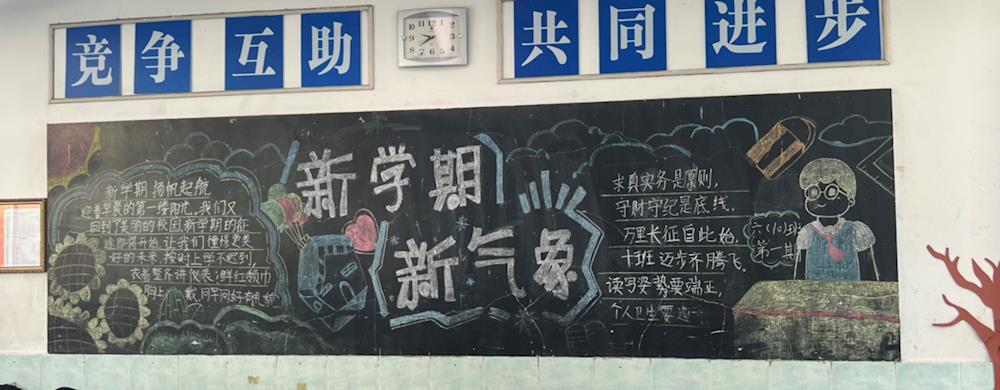 竞争互助
共同进步
新学期
新气象
新学期 扬帆起航
迎着早晨的第一缕阳光,我们又
回到了美丽的校园,新学期的征
途即将开始,让我们憧憬更美
好的未来,按时上学不迟到,
衣着整齐讲仪表;鲜红领巾
胸上戴,同学问好有礼貌
求真实务是原则,
守时守纪是底线.
万里长征自此始,
十班迈步齐腾飞.
读写姿势要端正,
个人卫生要
六(10)班
第一期